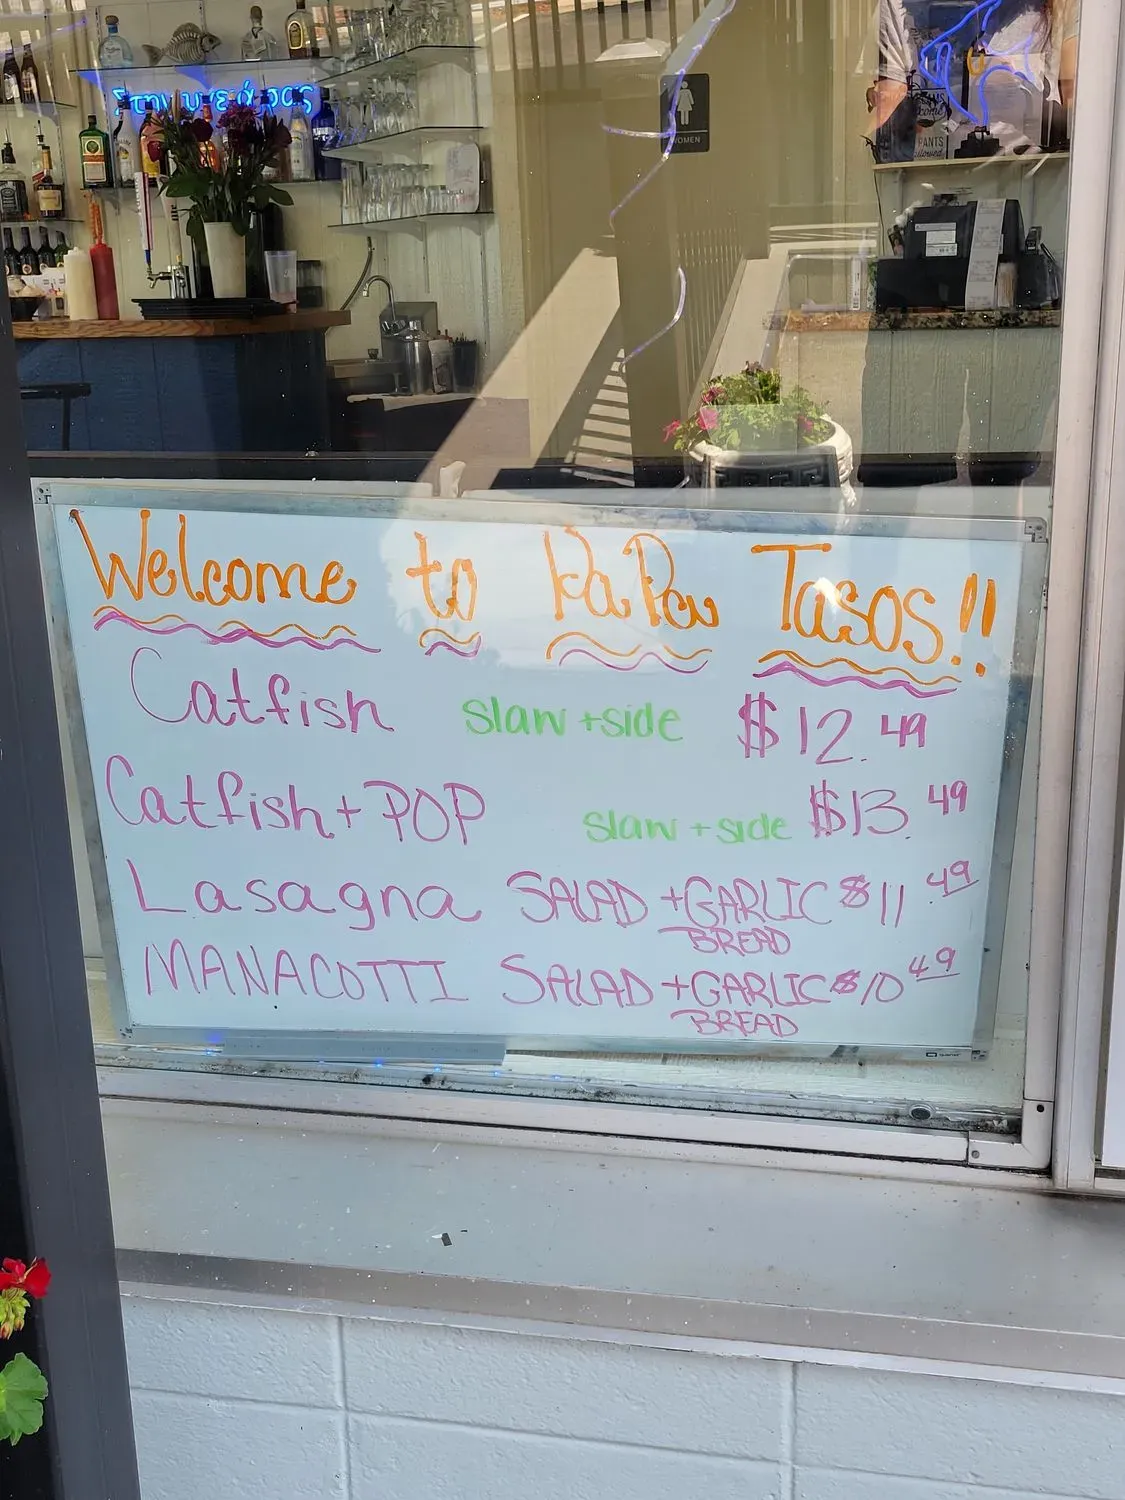 Στην υγειά σας
WOMEN
PANTS
allowed
Welcome to PaPa Tasos!!
Catfish slaw + side $12.49
Catfish + POP slaw + side $13.49
Lasagna SALAD + GARLIC BREAD $11.49
MANACOTTI SALAD + GARLIC BREAD $10.49